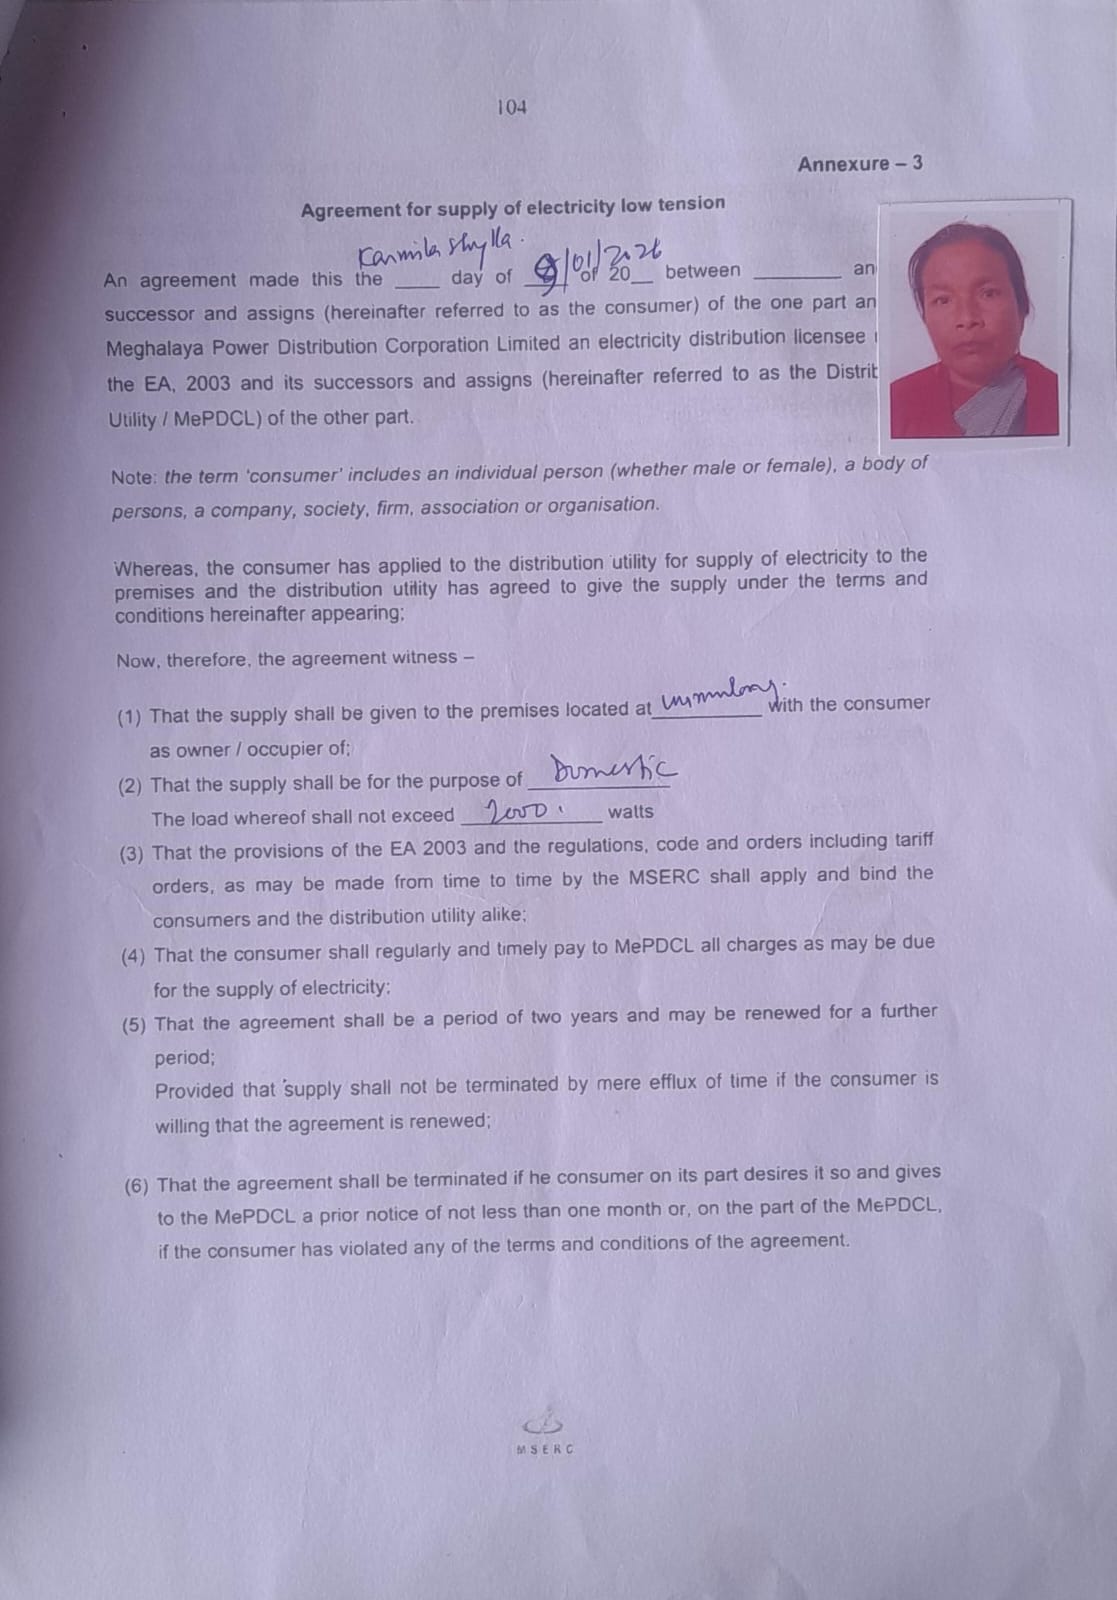 104
Annexure – 3
Agreement for supply of electricity low tension
Karmila Shylla.
/01/2026
An agreement made this the ____ day of ____ of 20__ between ________ an
successor and assigns (hereinafter referred to as the consumer) of the one part an
Meghalaya Power Distribution Corporation Limited an electricity distribution licensee
the EA, 2003 and its successors and assigns (hereinafter referred to as the Distrib
Utility / MePDCL) of the other part.
Note: the term 'consumer' includes an individual person (whether male or female), a body of
persons, a company, society, firm, association or organisation.
Whereas, the consumer has applied to the distribution utility for supply of electricity to the
premises and the distribution utility has agreed to give the supply under the terms and
conditions hereinafter appearing;
Now, therefore, the agreement witness –
(1) That the supply shall be given to the premises located at with the consumer
as owner / occupier of;
(2) That the supply shall be for the purpose of Domestic
The load whereof shall not exceed 2000. watts
(3) That the provisions of the EA 2003 and the regulations, code and orders including tariff
orders, as may be made from time to time by the MSERC shall apply and bind the
consumers and the distribution utility alike;
(4) That the consumer shall regularly and timely pay to MePDCL all charges as may be due
for the supply of electricity;
(5) That the agreement shall be a period of two years and may be renewed for a further
period;
Provided that supply shall not be terminated by mere efflux of time if the consumer is
willing that the agreement is renewed;
(6) That the agreement shall be terminated if he consumer on its part desires it so and gives
to the MePDCL a prior notice of not less than one month or, on the part of the MePDCL,
if the consumer has violated any of the terms and conditions of the agreement.
MSERC